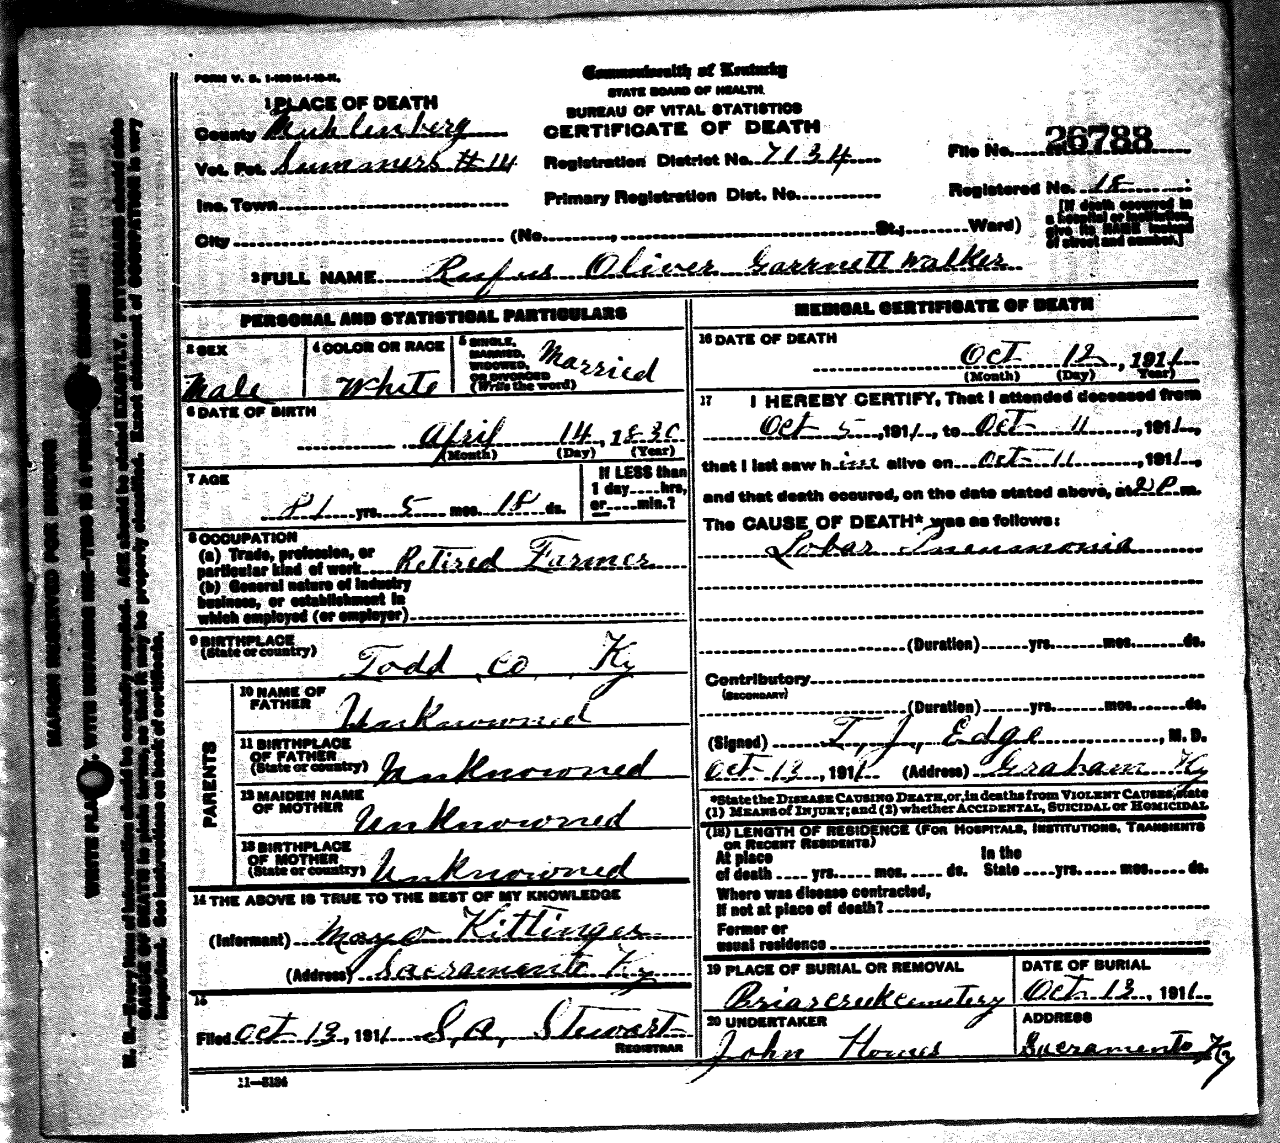 FORM V. S. 1-100M-1-10-11.
Commonwealth of Kentucky
STATE BOARD OF HEALTH.
BUREAU OF VITAL STATISTICS
CERTIFICATE OF DEATH
1 PLACE OF DEATH
County Muhlenberg
Vot. Pct. Summers #14
Registration District No. 7134
File No. 26788
Inc. Town
Primary Registration Dist. No.
Registered No. 18
City (No. , St.; Ward)
[If death occurred in
a hospital or institution,
give its NAME instead
of street and number.]
2 FULL NAME Rufus Oliver Garrnett Walker
PERSONAL AND STATISTICAL PARTICULARS
3 SEX
Male
4 COLOR OR RACE
White
5 SINGLE,
MARRIED,
WIDOWED,
OR DIVORCED
(Write the word)
Married
6 DATE OF BIRTH
April 14, 1830
(Month) (Day) (Year)
7 AGE
81 yrs. 5 mos. 18 ds.
If LESS than
1 day hrs,
or min.?
8 OCCUPATION
(a) Trade, profession, or
particular kind of work Retired Farmer
(b) General nature of industry
business, or establishment in
which employed (or employer)
9 BIRTHPLACE
(State or country)
Todd Co. Ky
PARENTS
10 NAME OF
FATHER
Unknowned
11 BIRTHPLACE
OF FATHER
(State or country)
Unknowned
12 MAIDEN NAME
OF MOTHER
Unknowned
13 BIRTHPLACE
OF MOTHER
(State or country)
Unknowned
14 THE ABOVE IS TRUE TO THE BEST OF MY KNOWLEDGE
(Informant) Mayo Kittinger
(Address) Sacramento Ky
15
Filed Oct 13, 1911 S. A. Stewart
REGISTRAR
11—3184
MEDICAL CERTIFICATE OF DEATH
16 DATE OF DEATH
Oct 12, 1911
(Month) (Day) (Year)
17 I HEREBY CERTIFY, That I attended deceased from
Oct 5, 1911, to Oct 11, 1911,
that I last saw him alive on Oct 11, 1911,
and that death occured, on the date stated above, at 2 P m.
The CAUSE OF DEATH* was as follows:
Lobar Pneumonia
(Duration) yrs. mos. ds.
Contributory
(SECONDARY)
(Duration) yrs. mos. ds.
(Signed) T. J. Edge, M. D.
Oct 13, 1911 (Address) Graham Ky
*State the DISEASE CAUSING DEATH, or, in deaths from VIOLENT CAUSES, state
(1) MEANS of INJURY; and (2) whether ACCIDENTAL, SUICIDAL or HOMICIDAL
(18) LENGTH OF RESIDENCE (FOR HOSPITALS, INSTITUTIONS, TRANSIENTS
OR RECENT RESIDENTS)
At place
of death yrs. mos. ds.
In the
State yrs. mos. ds.
Where was disease contracted,
If not at place of death?
Former or
usual residence
19 PLACE OF BURIAL OR REMOVAL
Briarcreek cemetery
DATE OF BURIAL
Oct 13, 1911
20 UNDERTAKER
John
ADDRESS
Sacramento Ky
MARGIN RESERVED FOR BINDING
WRITE PLA , WITH UNFADING INK—THIS IS A PERMA
N. B.—Every item of information should be carefully supplied. AGE should be stated EXACTLY. PHYSICIANS should state
CAUSE OF DEATH in plain terms, so that it may be properly classified. Exact statement of OCCUPATION is very
important. See instructions on back of certificate.